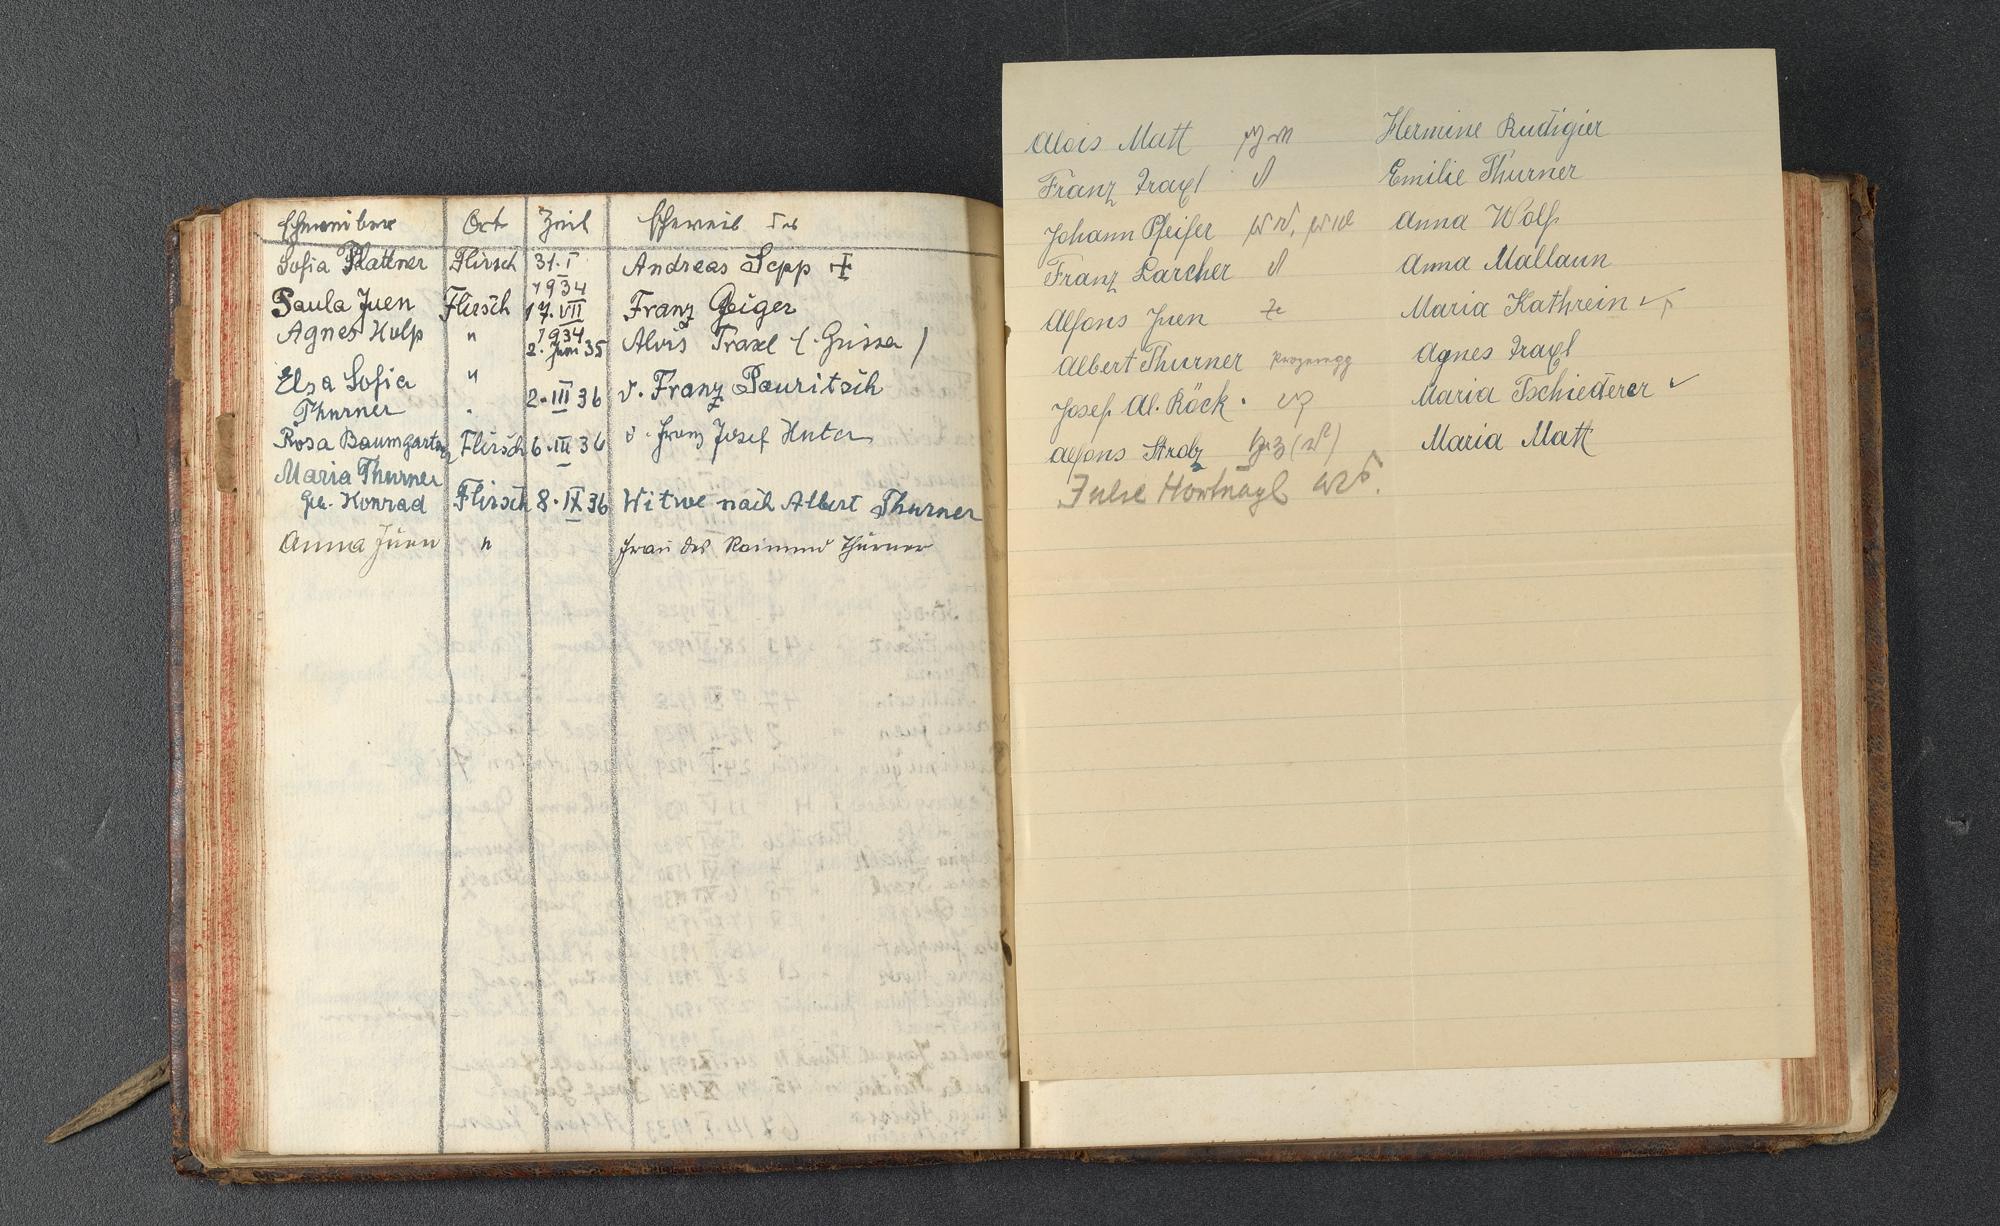 Eheweiber Ort Zeit Eheweib des
Sofia Plattner Flirsch 31. I 1934 Andreas Sepp
Paula Juen Flirsch 17. VII 1934 Franz Geiger
Agnes Wolf " 2. Juni 35 Alois Traxl
Elsa Sofia "
Thurner " 2. III 36 d. Franz Pauritsch
Rosa Baumgartner Flirsch 6. III 36 d. Franz Josef
Maria Thurner
geb. Konrad Flirsch 8. IX 36 Witwe nach Albert Thurner
Anna Juen " Frau des Raimund Thurner
Alois Matt Hermine Rudigier
Franz Traxl Emilie Thurner
Johann Pfeifer Anna Wolf
Franz Larcher Anna Mallaun
Alfons Juen Maria Kathrein
Albert Thurner Agnes Traxl
Josef Al. Röck Maria Tschiederer
Alfons Strolz Maria Matt